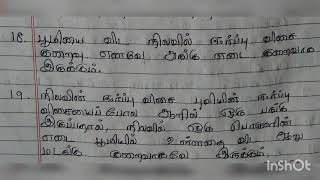 18. பூமியை விட நிலவில் ஈர்ப்பு விசை
குறைவு எனவே அங்கு எடை குறைவாக
இருக்கும்.
19. நிலவின் ஈர்ப்பு விசை புவியின் ஈர்ப்பு
விசையைப் போல ஆறில் ஒரு பங்கு
இருப்பதால், நிலவில் ஒரு பொருளின்
எடை பூமியில் உள்ளதை விட ஆறு
மடங்கு குறைவாகவே இருக்கும்.
InShot